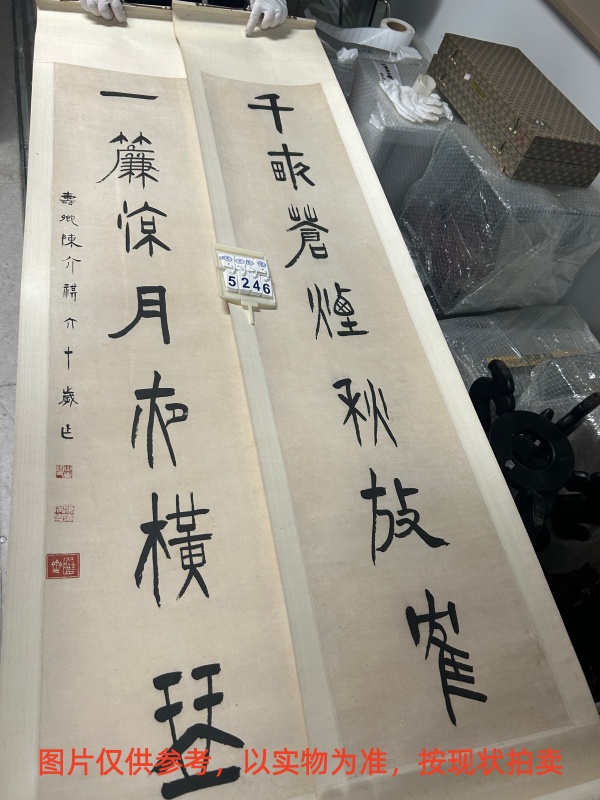 千畝蒼煙秋放崔
一簾涼月夜橫琴
壽卿陳介祺六十歲作
5246
图片仅供参考，以实物为准，按现状拍卖